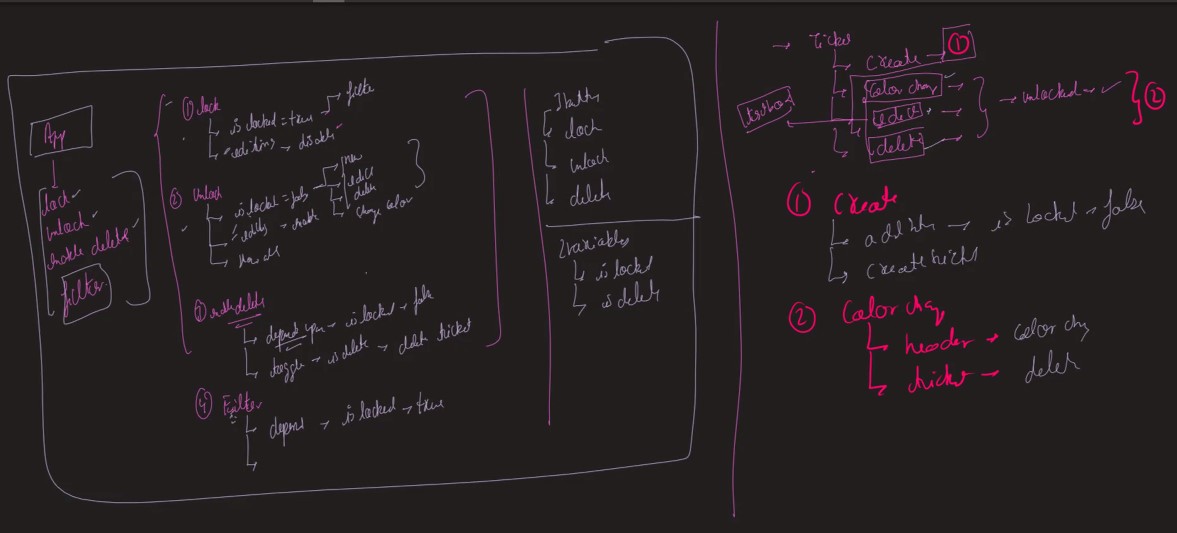 App
lock
unlock
enable delete
filter
① lock
is locked = true → filter
editing → disable
② Unlock
is locked = false → new
edit
delete
editing → enable
change color
③ enable delete
depends upon → is locked → false
toggle → is delete → delete ticket
④ Filter
depend → is locked → true
3 button
lock
unlock
delete
2 variables
is locked
is delete
→ Ticket
create → ①
color chang
edit
delete
→ unlocked → ✓ ②
① Create
→ is locked → false
create ticket
② Color chang
header → color chang
ticket → delete